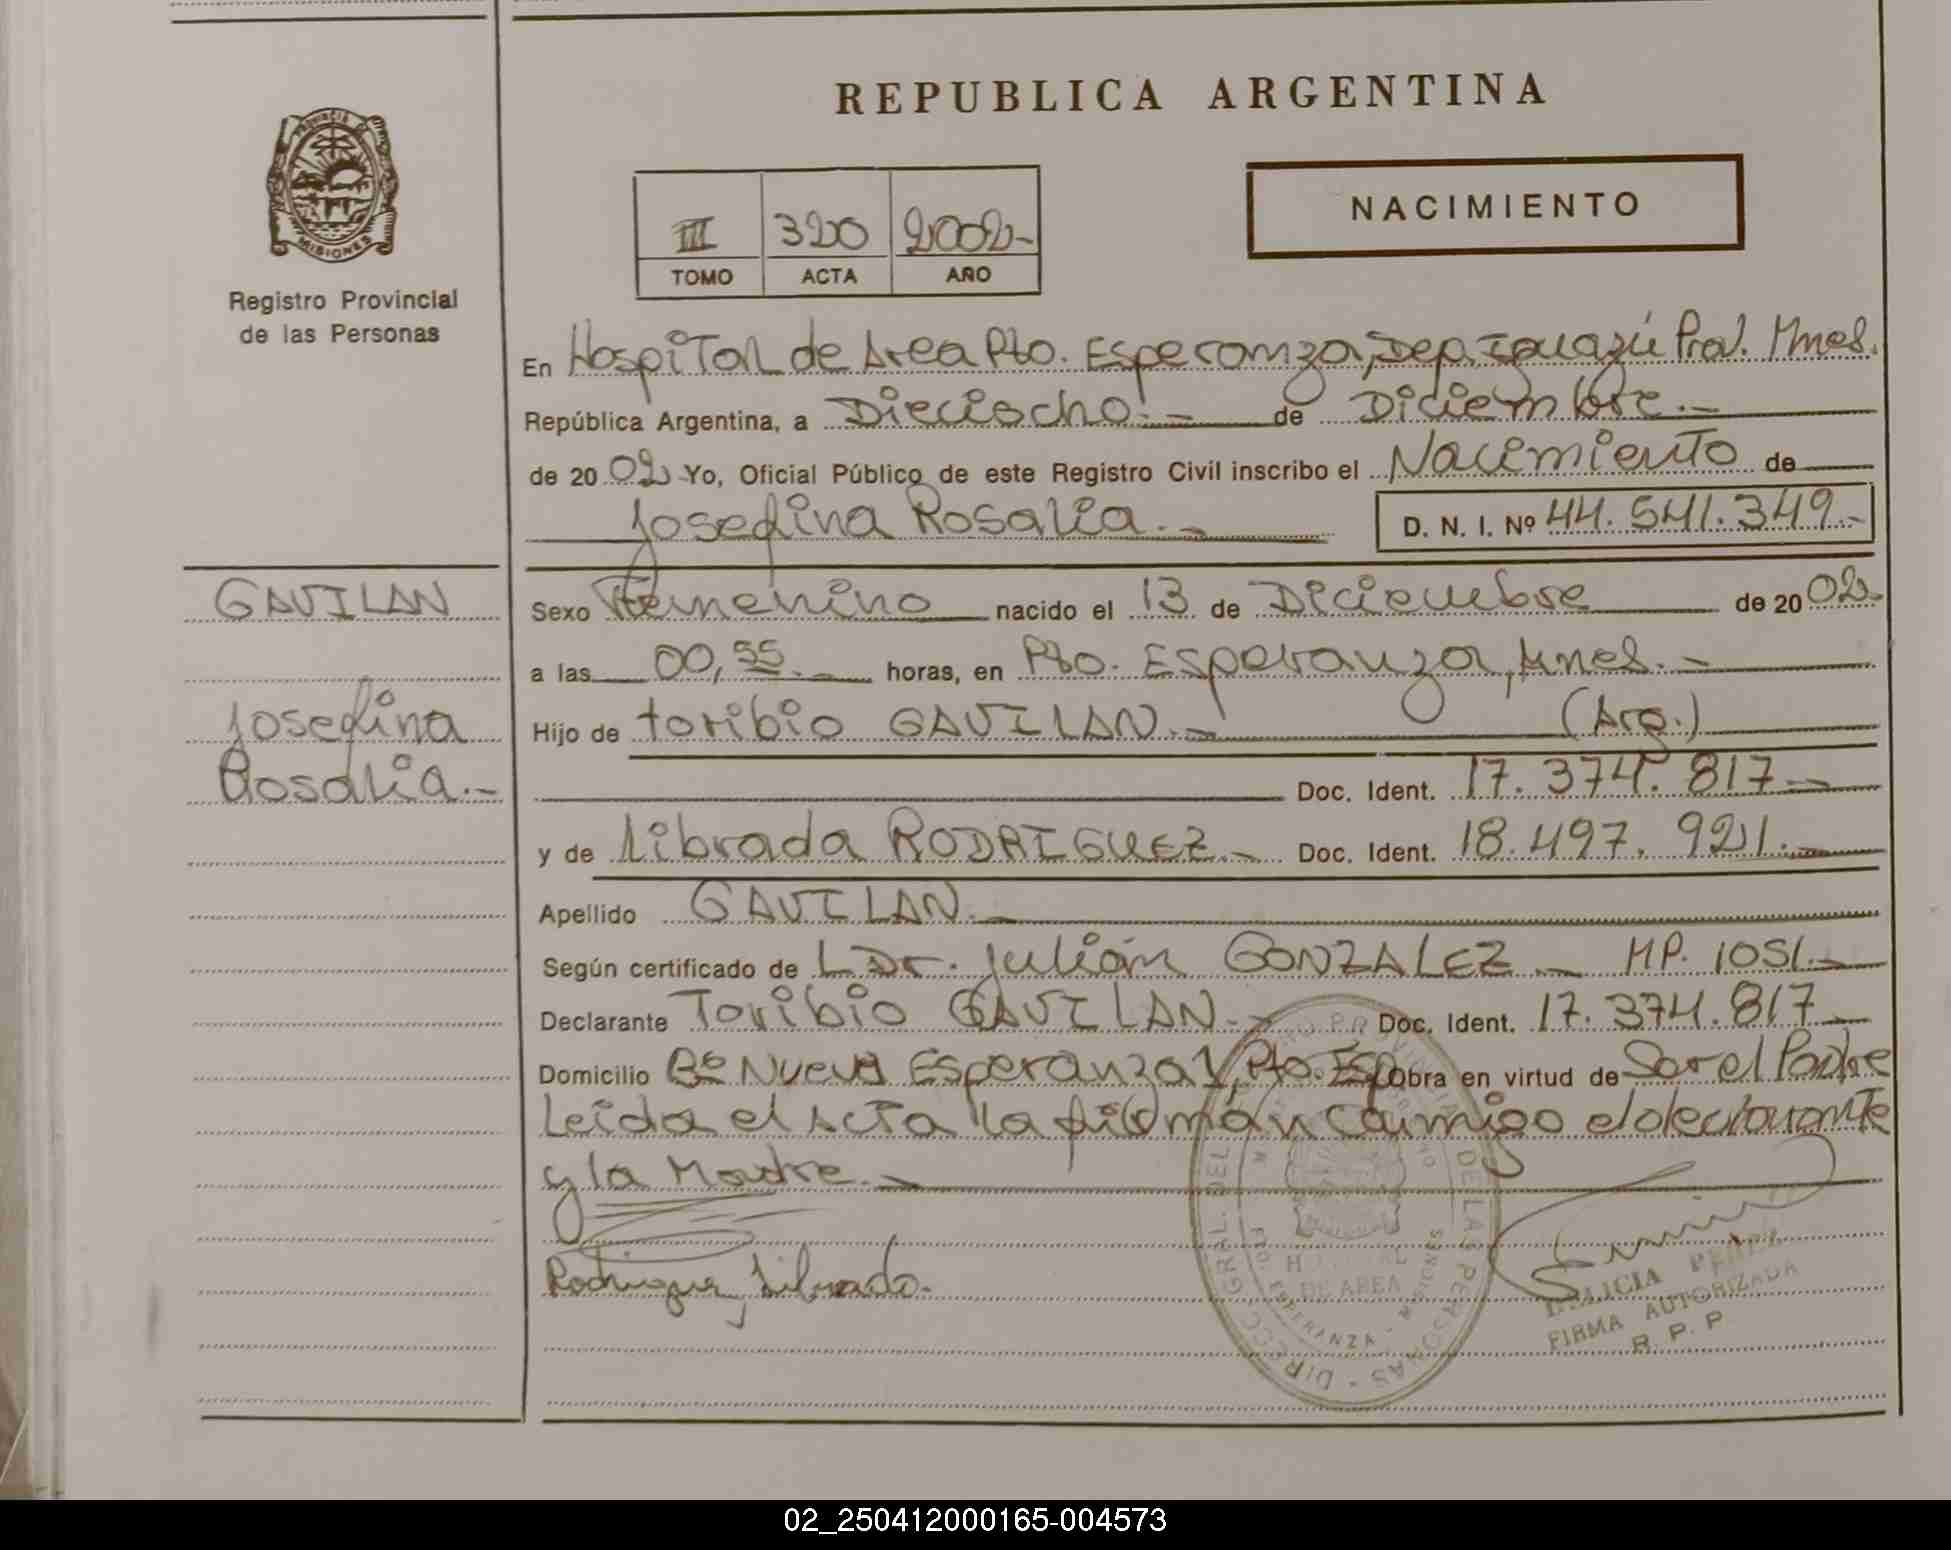 REPUBLICA ARGENTINA
PROVINCIA DE
MISIONES
Registro Provincial
de las Personas
NACIMIENTO
III 320 2002-
TOMO ACTA AÑO
En Hospital de Area Pto. Esperanza, Dep. Iguazú Prov. Mnes.
República Argentina, a Dieciocho.- de Diciembre.-
de 20 02 Yo, Oficial Público de este Registro Civil inscribo el Nacimiento de
Josefina Rosalia.- D. N. I. Nº 44.541.349.-
GAVILAN
Josefina
Rosalia.-
Sexo Femenino nacido el 13 de Diciembre de 20 02-
a las 00,55.- horas, en Pto. Esperanza, Mnes.-
Hijo de toribio GAVILAN.- (Arg.)
Doc. Ident. 17.374.817-
y de Librada RODRIGUEZ.- Doc. Ident. 18.497.921.-
Apellido GAVILAN.-
Según certificado de Dr. Julián GONZALEZ.- MP. 1051.-
Declarante Toribio GAVILAN.- Doc. Ident. 17.374.817-
Domicilio Bº Nueva Esperanza 1, Pto. Esp Obra en virtud de Ser el Padre
Leida el Acta la firman conmigo el declarante
y la Madre.-
Rodriguez Librada.
DIRECC. GRAL. DEL REGISTRO PROVINCIAL DE LAS PERSONAS -
HOSPITAL
DE AREA
PTO. ESPERANZA - MISIONES
FIRMA AUTORIZADA
R. P. P.
02_250412000165-004573